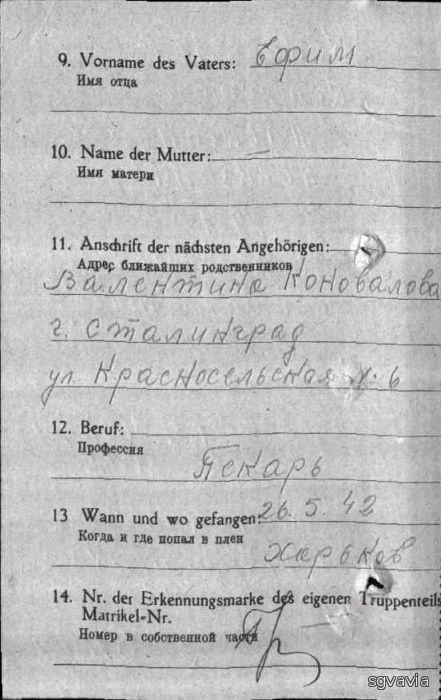 9. Vorname des Vaters: Ефим
Имя отца
10. Name der Mutter: —
Имя матери
11. Anschrift der nächsten Angehörigen:
Адрес ближайших родственников
Валентина Коновалова
г. Сталинград
ул. Красносельская №: 6
12. Beruf:
Профессия
Пекарь
13 Wann und wo gefangen: 26. 5. 42
Когда и где попал в плен
Харьков
14. Nr. der Erkennungsmarke des eigenen Truppenteils
Matrikel-Nr.
Номер в собственной части
sgvavia